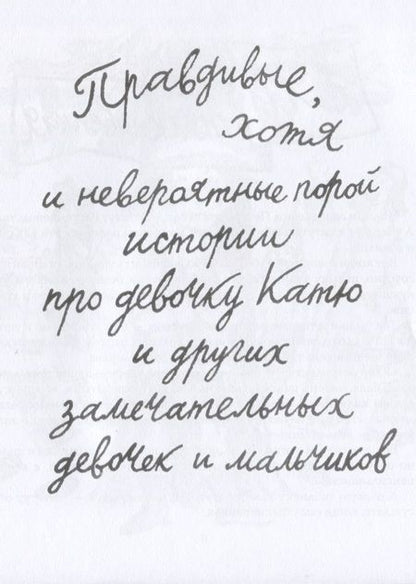 Правдивые,
хотя
и невероятные порой
истории
про девочку Катю
и других
замечательных
девочек и мальчиков